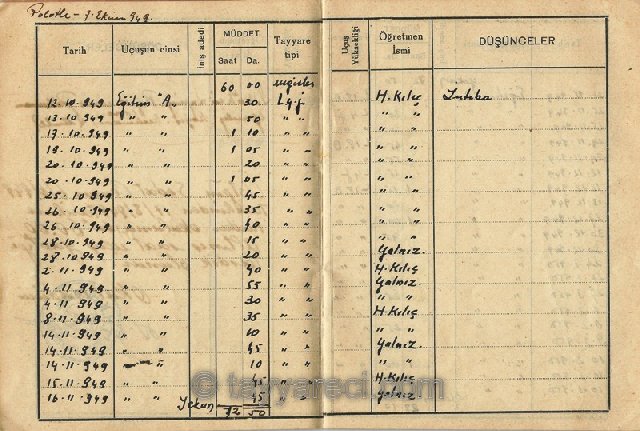 7. Ekim 949.
Tarih Uçuşun cinsi İniş adedi MÜDDET Tayyare tipi Uçuş Yüksekliği Öğretmen İsmi DÜŞÜNCELER
Saat Da.
60 00
12-10-949 Eğitim "A" 30 H. Kılıç İntibak
13-10-949 " " 50 " " " "
17-10-949 " " 1 10 " " " "
19-10-949 " " 1 05 " " " "
20-10-949 " " 20 " " " "
20-10-949 " " 1 05 " " " "
25-10-949 " " 45 " " " "
26-10-949 " " 35 " " " "
26-10-949 " " 40 " " " "
28-10-949 " " 15 " " " "
28-10-949 " " 20 " " Yalnız.
2-11-949 " " 40 " " H. Kılıç
4-11-949 " " 55 " " Yalnız
4-11-949 " " 30 " " " "
8-11-949 " " 35 " " H. Kılıç
14-11-949 " " 10 " " " "
14-11-949 " " 45 " " Yalnız
14-11-949 " 10 " " " "
15-11-949 " " 45 " " H. Kılıç
16-11-949 " " 45 " " Yalnız
Yekun 72 50
© tayyareci.com